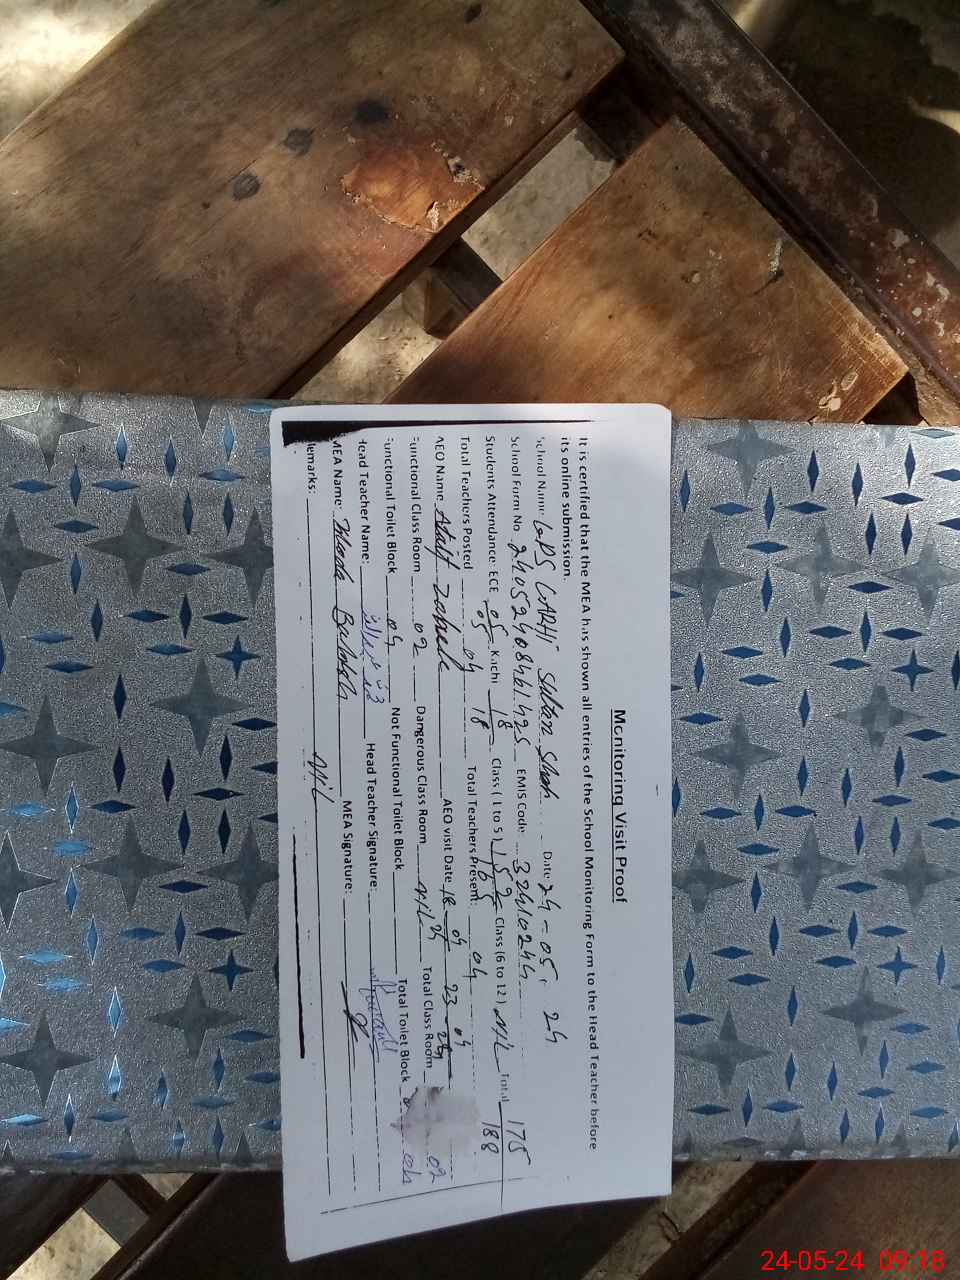 Monitoring Visit Proof
It is certified that the MEA has shown all entries of the School Monitoring Form to the Head Teacher before
its online submission.
School Name: GPS GARHI Sultan Shah Date: 24-05-24
School Form No. EMIS Code: 32410244
Students Attendance: ECE 05/05 Kachi 18/18 Class (1 to 5) 152/165 Class (6 to 12) Nil Total 175/188
Total Teachers Posted 04 Total Teachers Present: 04
AEO Name AEO visit Date 18-04-24 23-04-24
Functional Class Room 02 Dangerous Class Room Nil Total Class Room 02
Functional Toilet Block 04 Not Functional Toilet Block Total Toilet Block 04
Head Teacher Name: Head Teacher Signature:
MEA Name: MEA Signature:
Remarks: Nil
24-05-24 09:18